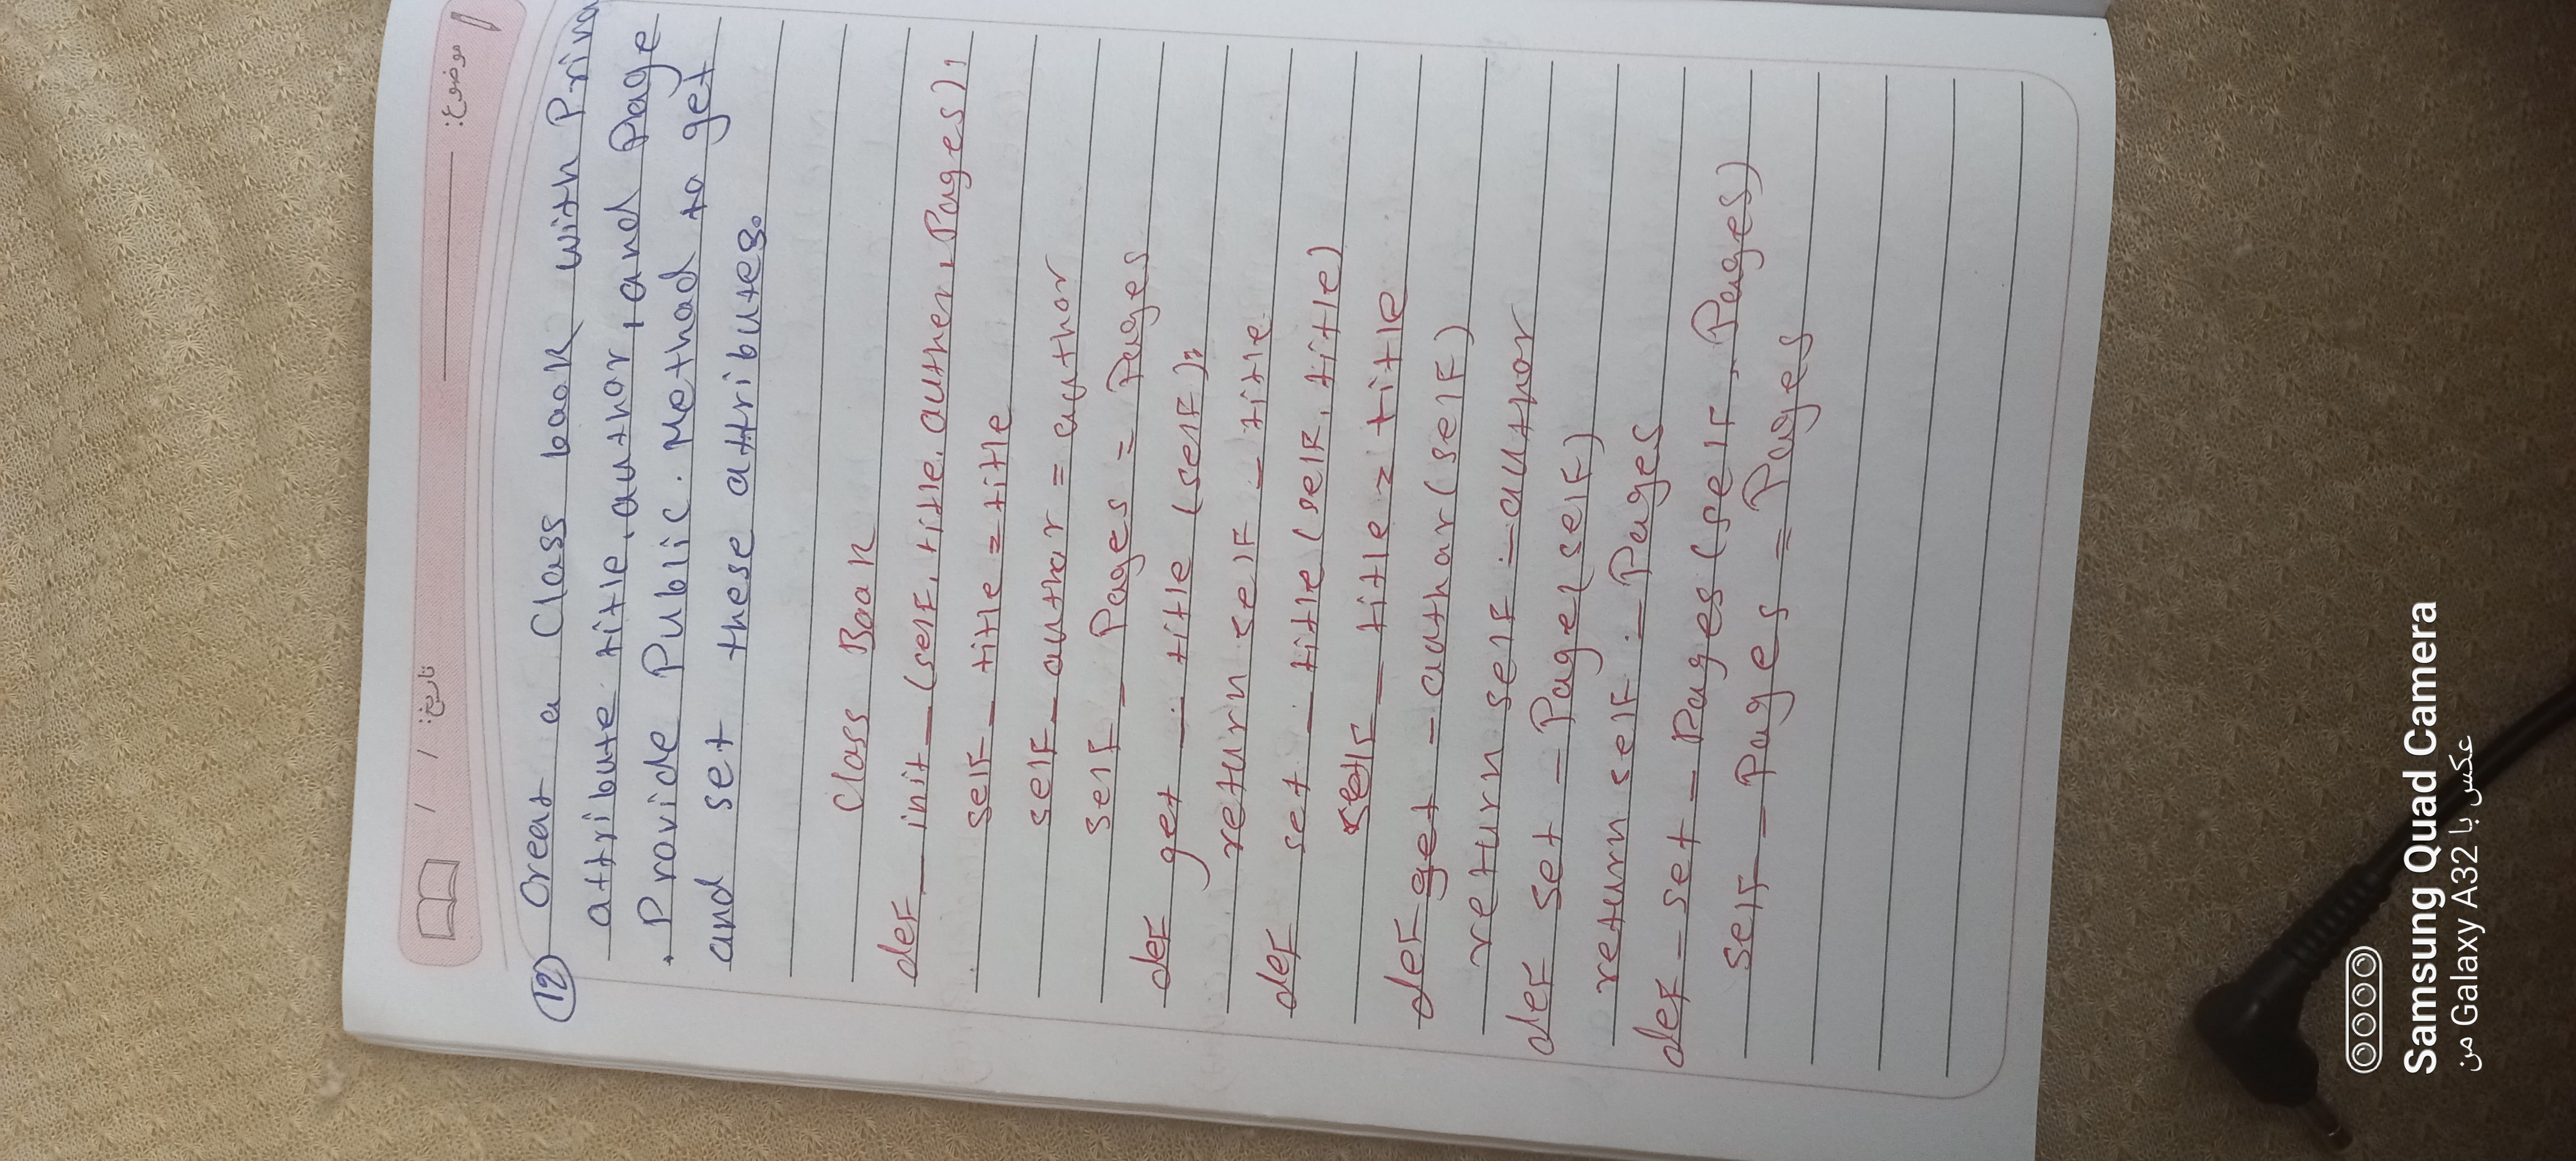 تاریخ: / /
موضوع:
12 Creat a Class baok with Priva
attribute title, author, and Page
. Provide Public. Methad to get
and set these attributes.
Class Baak
def _ init _ (self, title, auther, Pages):
self _ title = title
self _ authar = author
self _ Pages = Pages
def get _ title (self):
return self _ title
def set _ title (self, title)
self _ title = title
def get _ authar (self)
return self _ author
def set _ Page (self)
return self _ Pages
def _ set _ Pages (self, Pages)
self _ Pages = Pages
Samsung Quad Camera
عکس با Galaxy A32 من